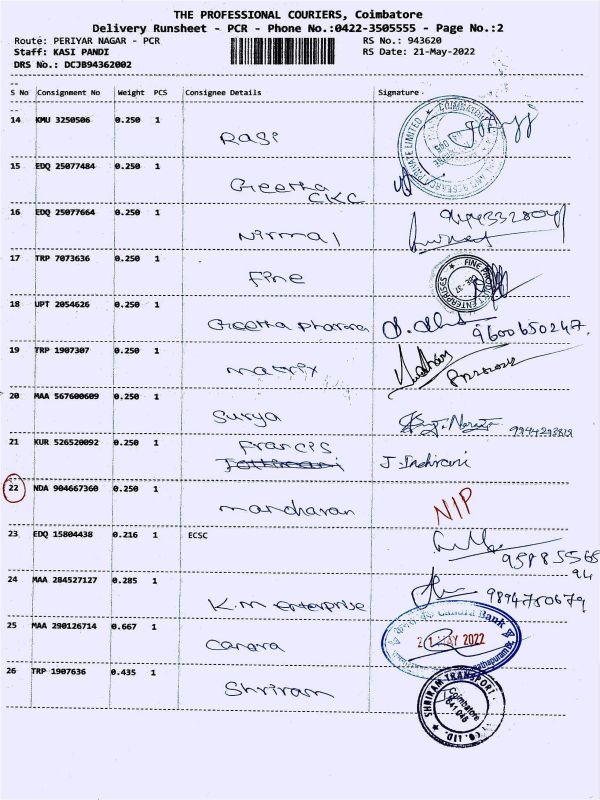 THE PROFESSIONAL COURIERS, Coimbatore
Delivery Runsheet - PCR - Phone No.:0422-3505555 - Page No.:2
Route: PERIYAR NAGAR - PCR RS No.: 943620
Staff: KASI PANDI RS Date: 21-May-2022
DRS No.: DCJB94362002
S No Consignment No Weight PCS Consignee Details Signature
14 KMU 3250506 0.250 1
Rasi
15 EDQ 25077484 0.250 1
Geetha
CKC
16 EDQ 25077664 0.250 1
Nirmal
17 TRP 7073636 0.250 1
Fine
FINE PRODUCT ENTERPRISES
18 UPT 2054626 0.250 1
Geetha Pharma 9600650247.
19 TRP 1907307 0.250 1
matrix
20 MAA 567600609 0.250 1
Surya
21 KUR 526520092 0.250 1
Francis
J. Indirani
22 NDA 904667360 0.250 1
manoharan NIP
23 EDQ 15804438 0.216 1 ECSC
95985568
94
24 MAA 284527127 0.285 1
K.M enterprise 9894780679
25 MAA 290126714 0.667 1
Canara
Canara Bank
21 MAY 2022
26 TRP 1907636 0.435 1
Shriram
SHRIRAM TRANSPORT
Coimbatore
641 045
CO. LTD.